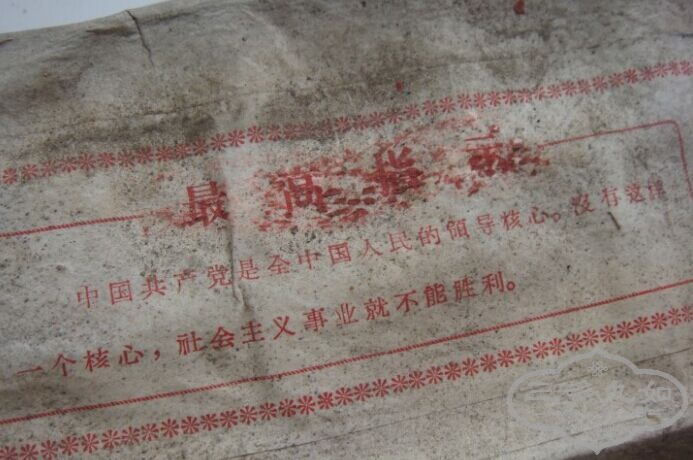 最高指示
中国共产党是全中国人民的领导核心。沒有这样
一个核心，社会主义事业就不能胜利。